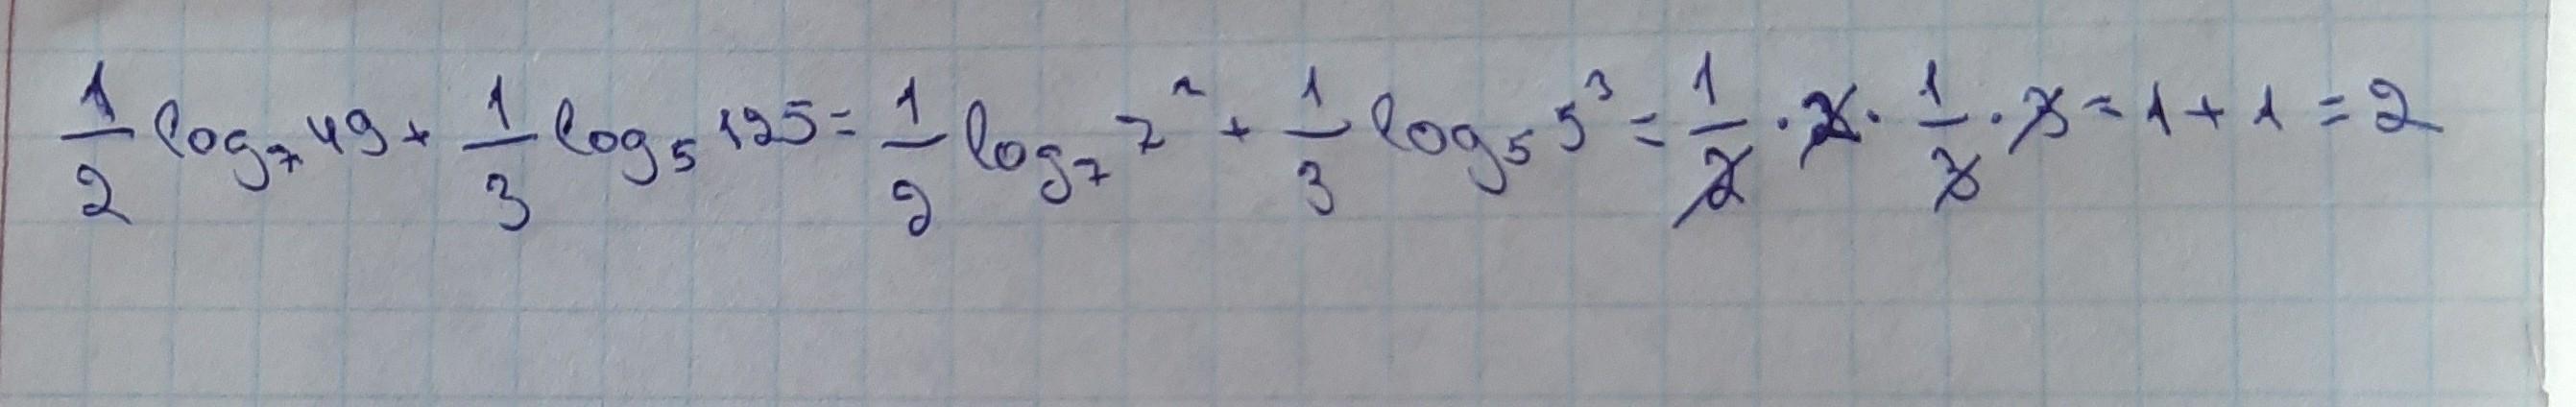 1/2 log₇ 49 + 1/3 log₅ 125 = 1/2 log₇ 7² + 1/3 log₅ 5³ = 1/2 · 2 · 1/3 · 3 = 1 + 1 = 2